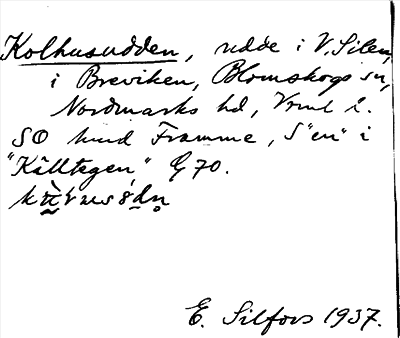 Kolhusudden, udde i V. Silen,
i Breviken, Blomskogs sn,
Nordmarks hd, Vrml l.
SO hmd Framme, S "en" i
"Källtegen," G 70.
E. Silfors 1937.